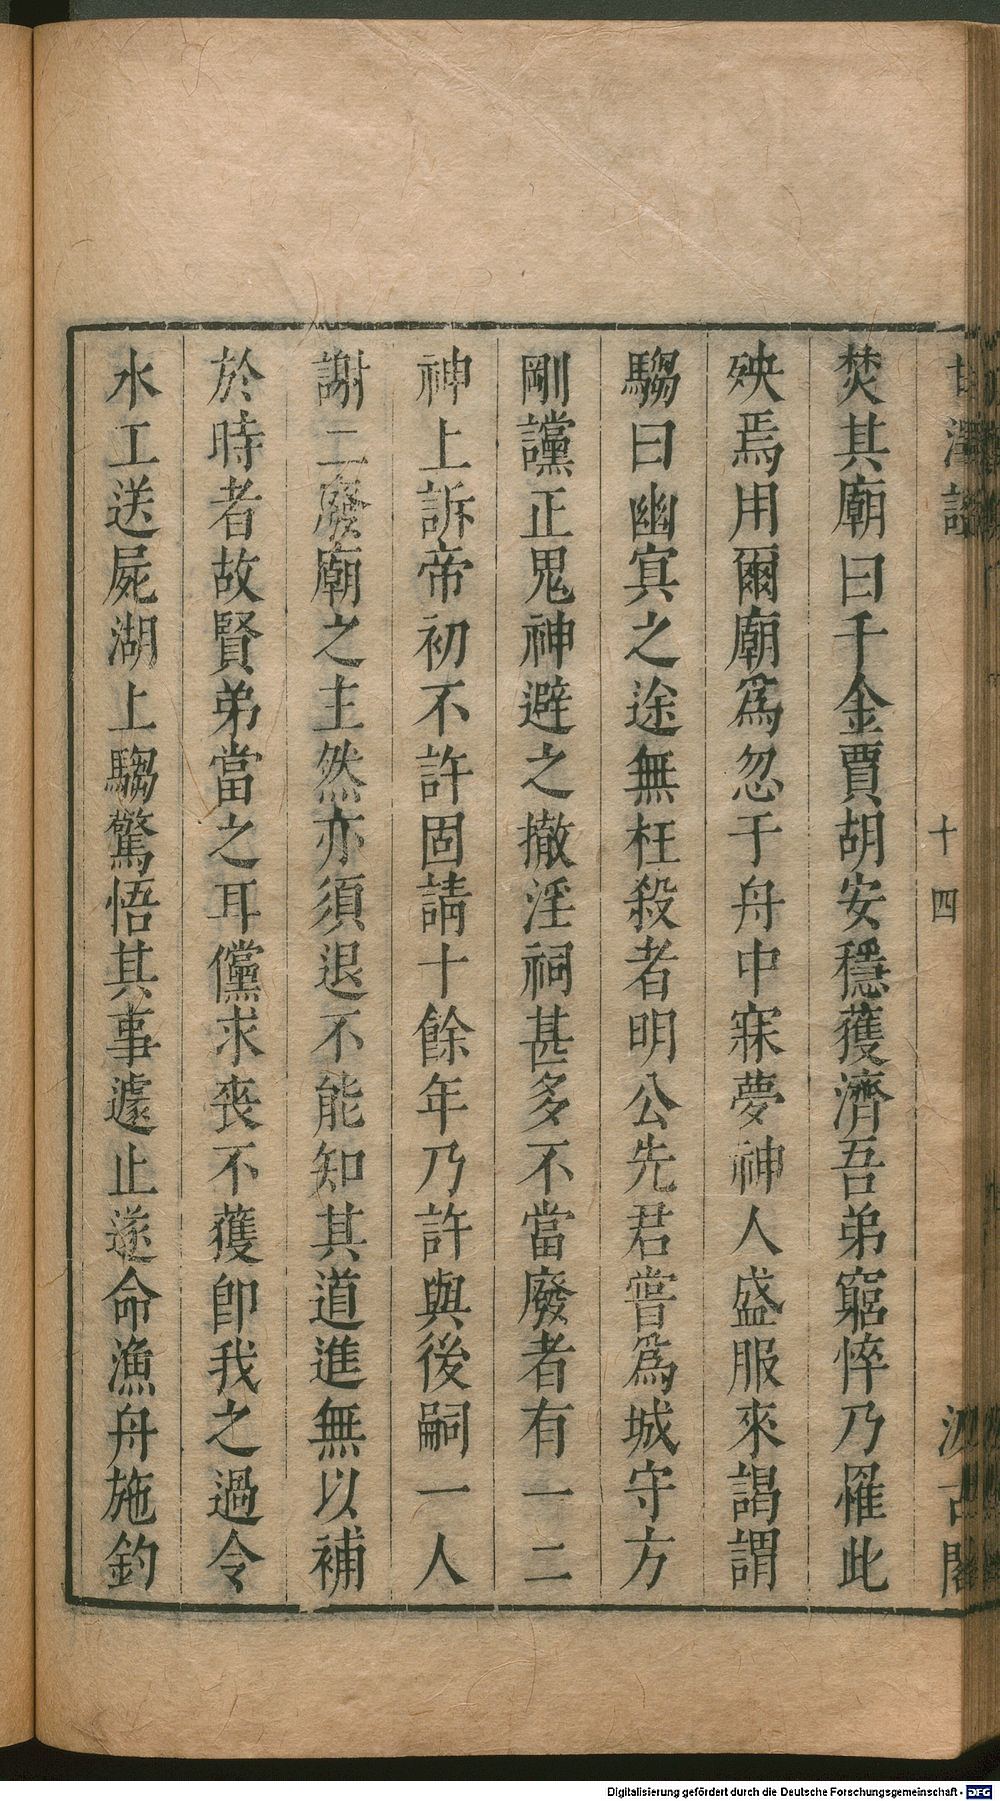 甘澤謠
十四
汲古閣
焚其廟曰千金賈胡安穩獲濟吾弟窮悴乃罹此
殃焉用爾廟爲忽于舟中寐夢神人盛服來謁謂
騶曰幽㝠之途無枉殺者明公先君嘗爲城守方
剛讜正鬼神避之撤淫祠甚多不當廢者有一二
神上訴帝初不許固請十餘年乃許與後嗣一人
謝二廢廟之主然亦須退不能知其道進無以補
於時者故賢弟當之耳儻求喪不獲即我之過令
水工送屍湖上騶驚悟其事遽止遂命漁舟施釣
Digitalisierung gefördert durch die Deutsche Forschungsgemeinschaft - DFG